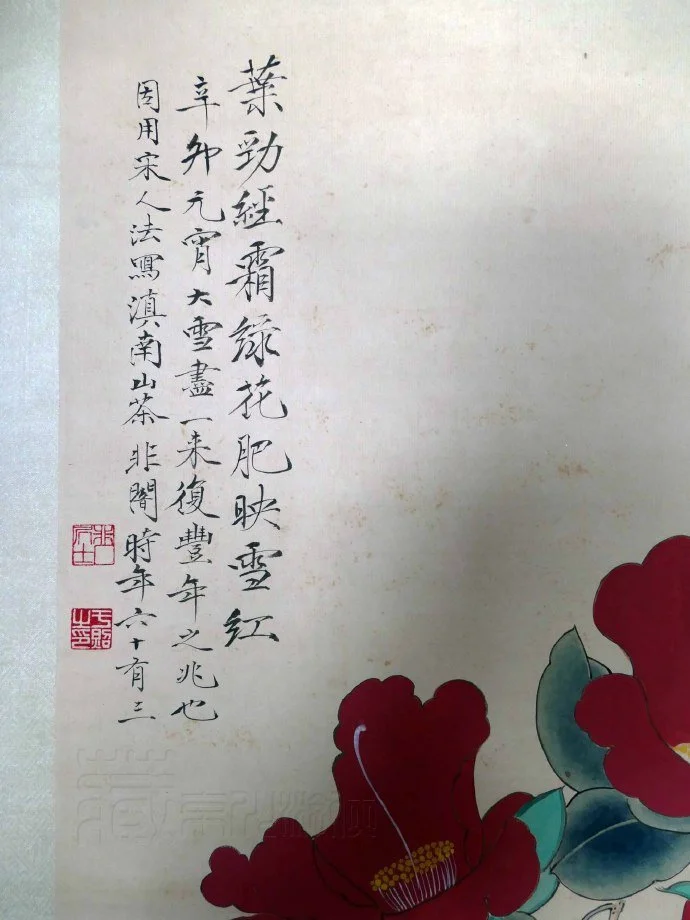 葉勁經霜緑花肥映雪紅
辛夘元宵大雪盡一来復豐年之兆也
因用宋人法寫滇南山茶非闇時年六十有三
于照
之印